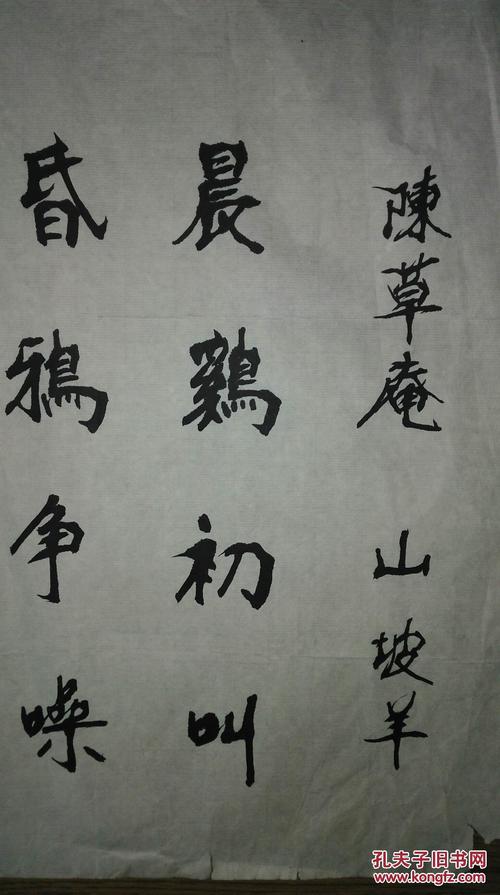 陳草庵 山坡羊
晨鷄初叫
昏鴉争噪
孔夫子旧书网
www.kongfz.com